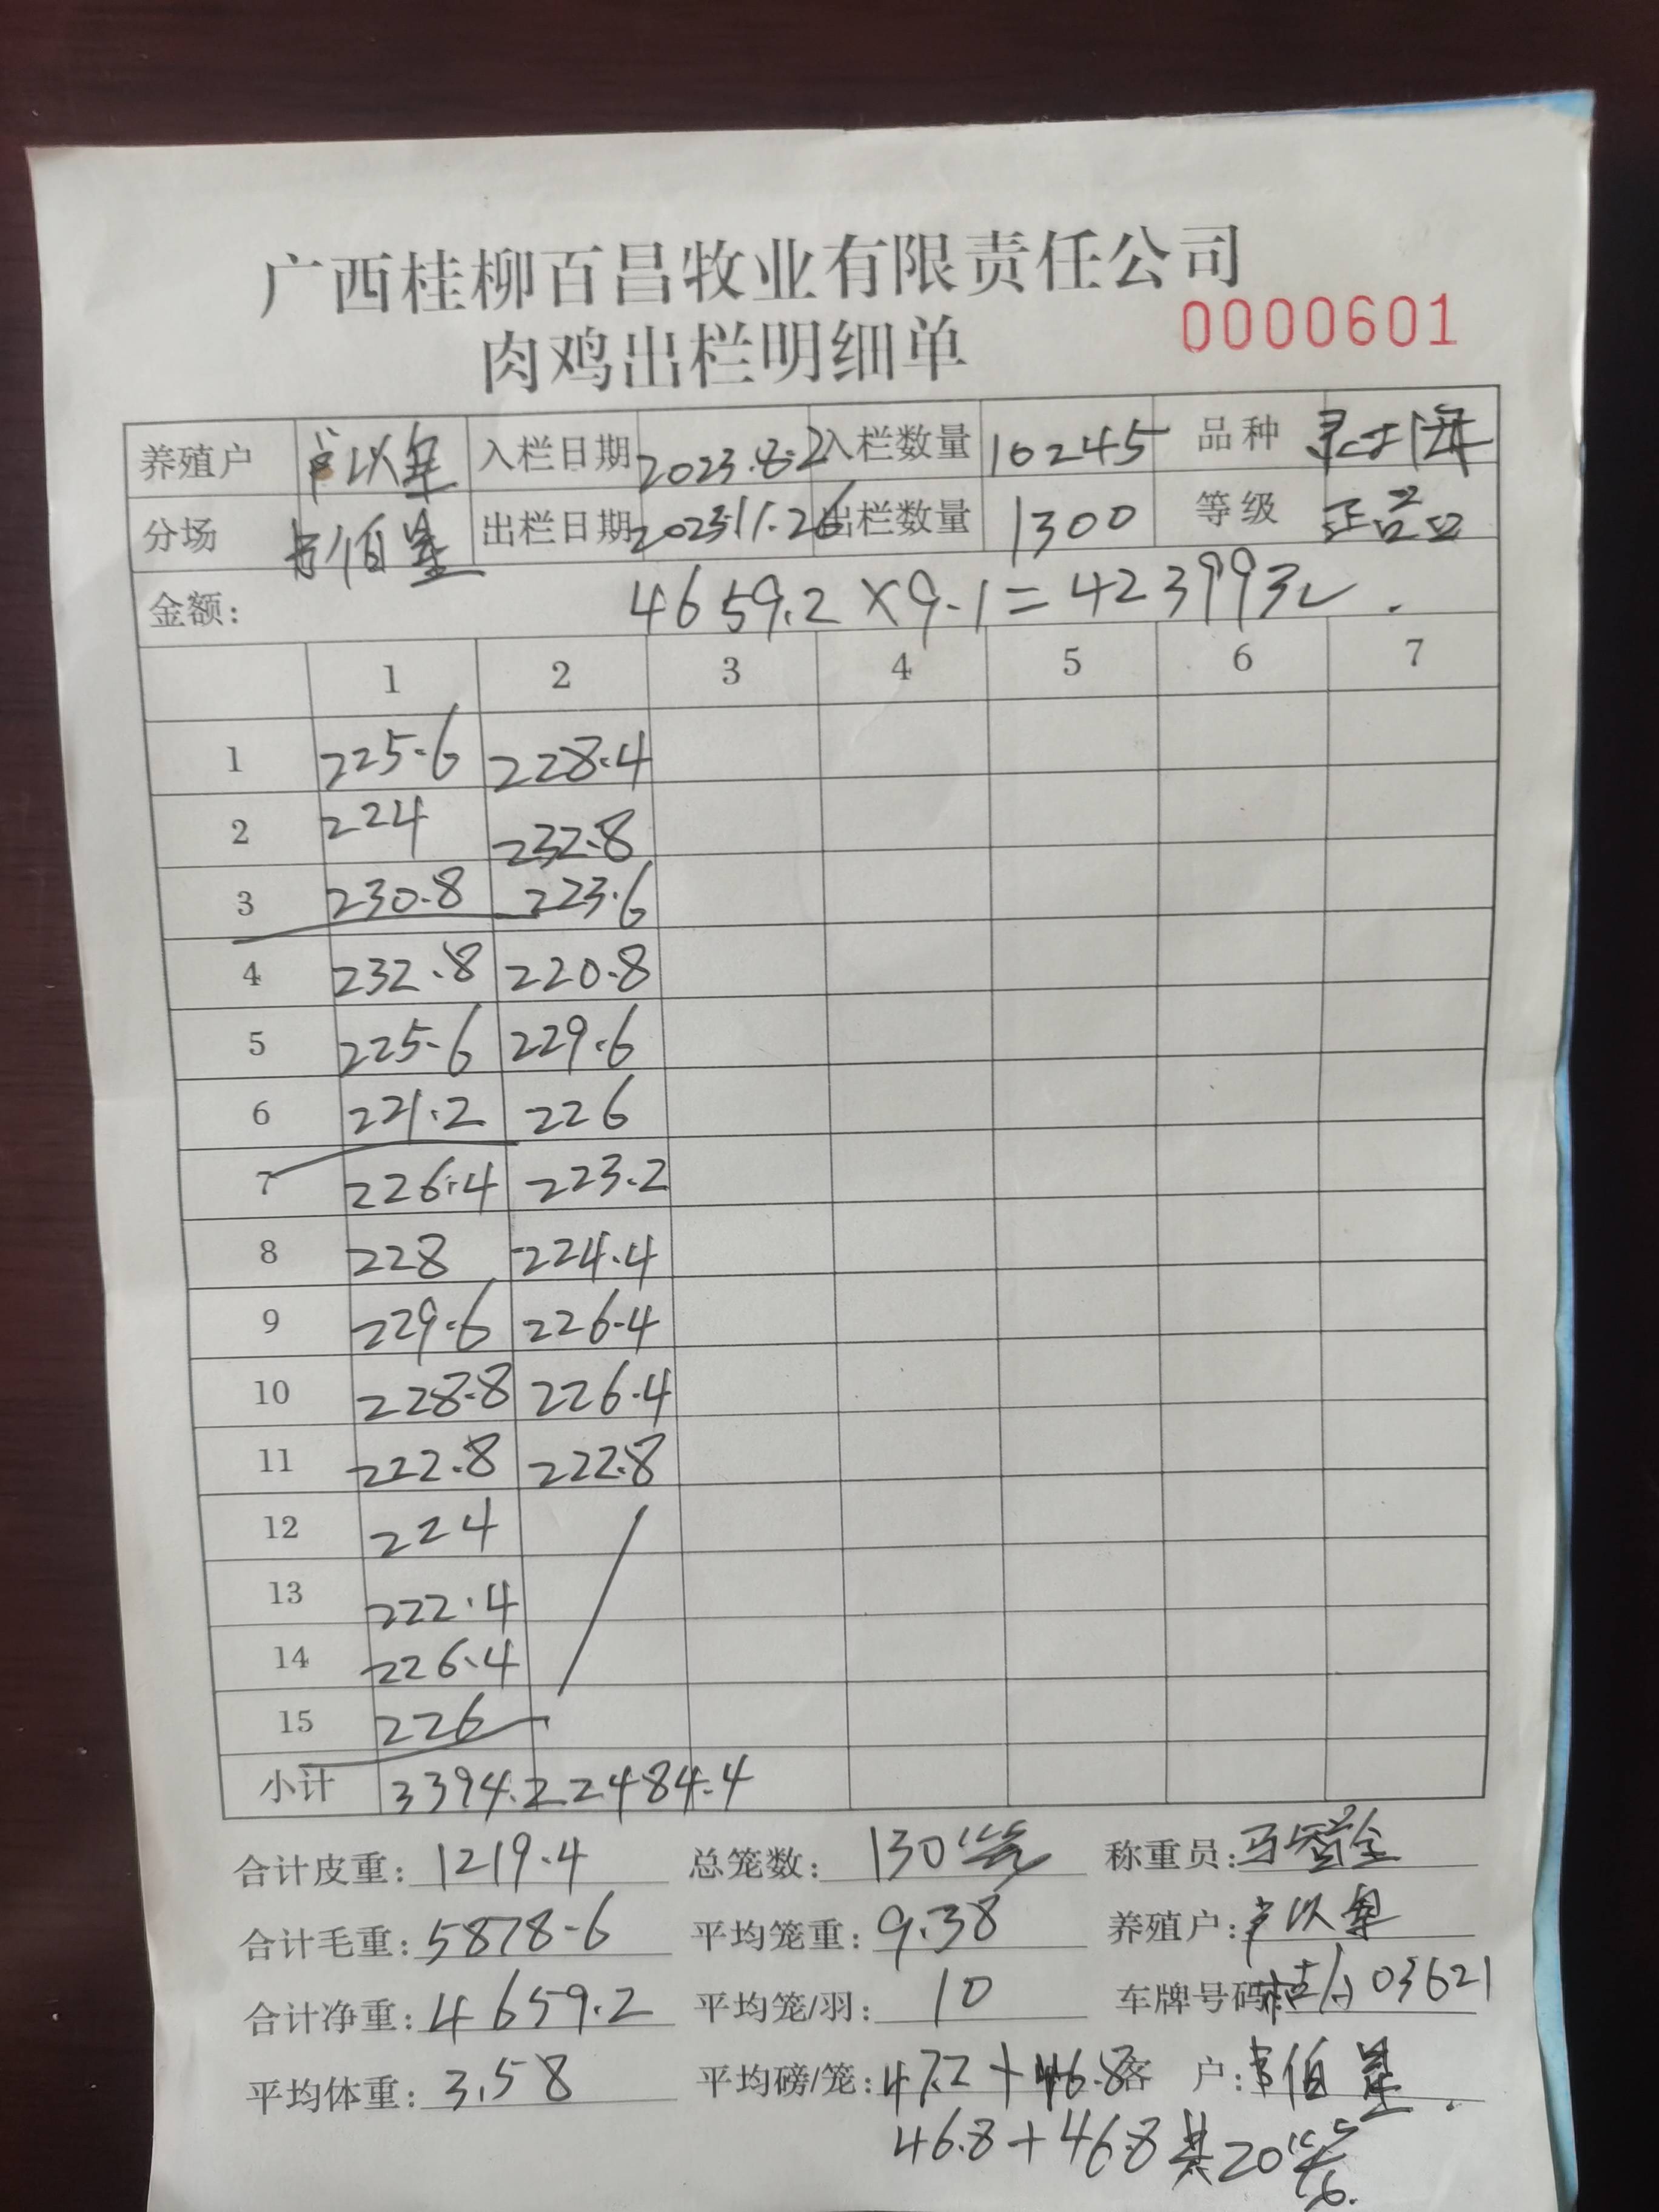 广西桂柳百昌牧业有限责任公司
肉鸡出栏明细单 0000601
养殖户 卢以军 入栏日期 2023.8.2 入栏数量 10245 品种
分场 韦伯星 出栏日期 2023.11.26 出栏数量 1300 等级 正品
金额: 4659.2×9.1=42399元.
1 2 3 4 5 6 7
1 225.6 228.4
2 224 232.8
3 230.8 223.6
4 232.8 220.8
5 225.6 229.6
6 221.2 226
7 226.4 223.2
8 228 224.4
9 229.6 226.4
10 228.8 226.4
11 222.8 222.8
12 224
13 222.4
14 226.4
15 226
小计 3394.2 2484.4
合计皮重: 1219.4 总笼数: 130笼 称重员:
合计毛重: 5878.6 平均笼重: 9.38 养殖户: 卢以军
合计净重: 4659.2 平均笼/羽: 10 车牌号码: 03621
平均体重: 3.58 平均磅/笼: 47.2+46.8 客 户: 韦伯星.
46.8+46.8共20笼